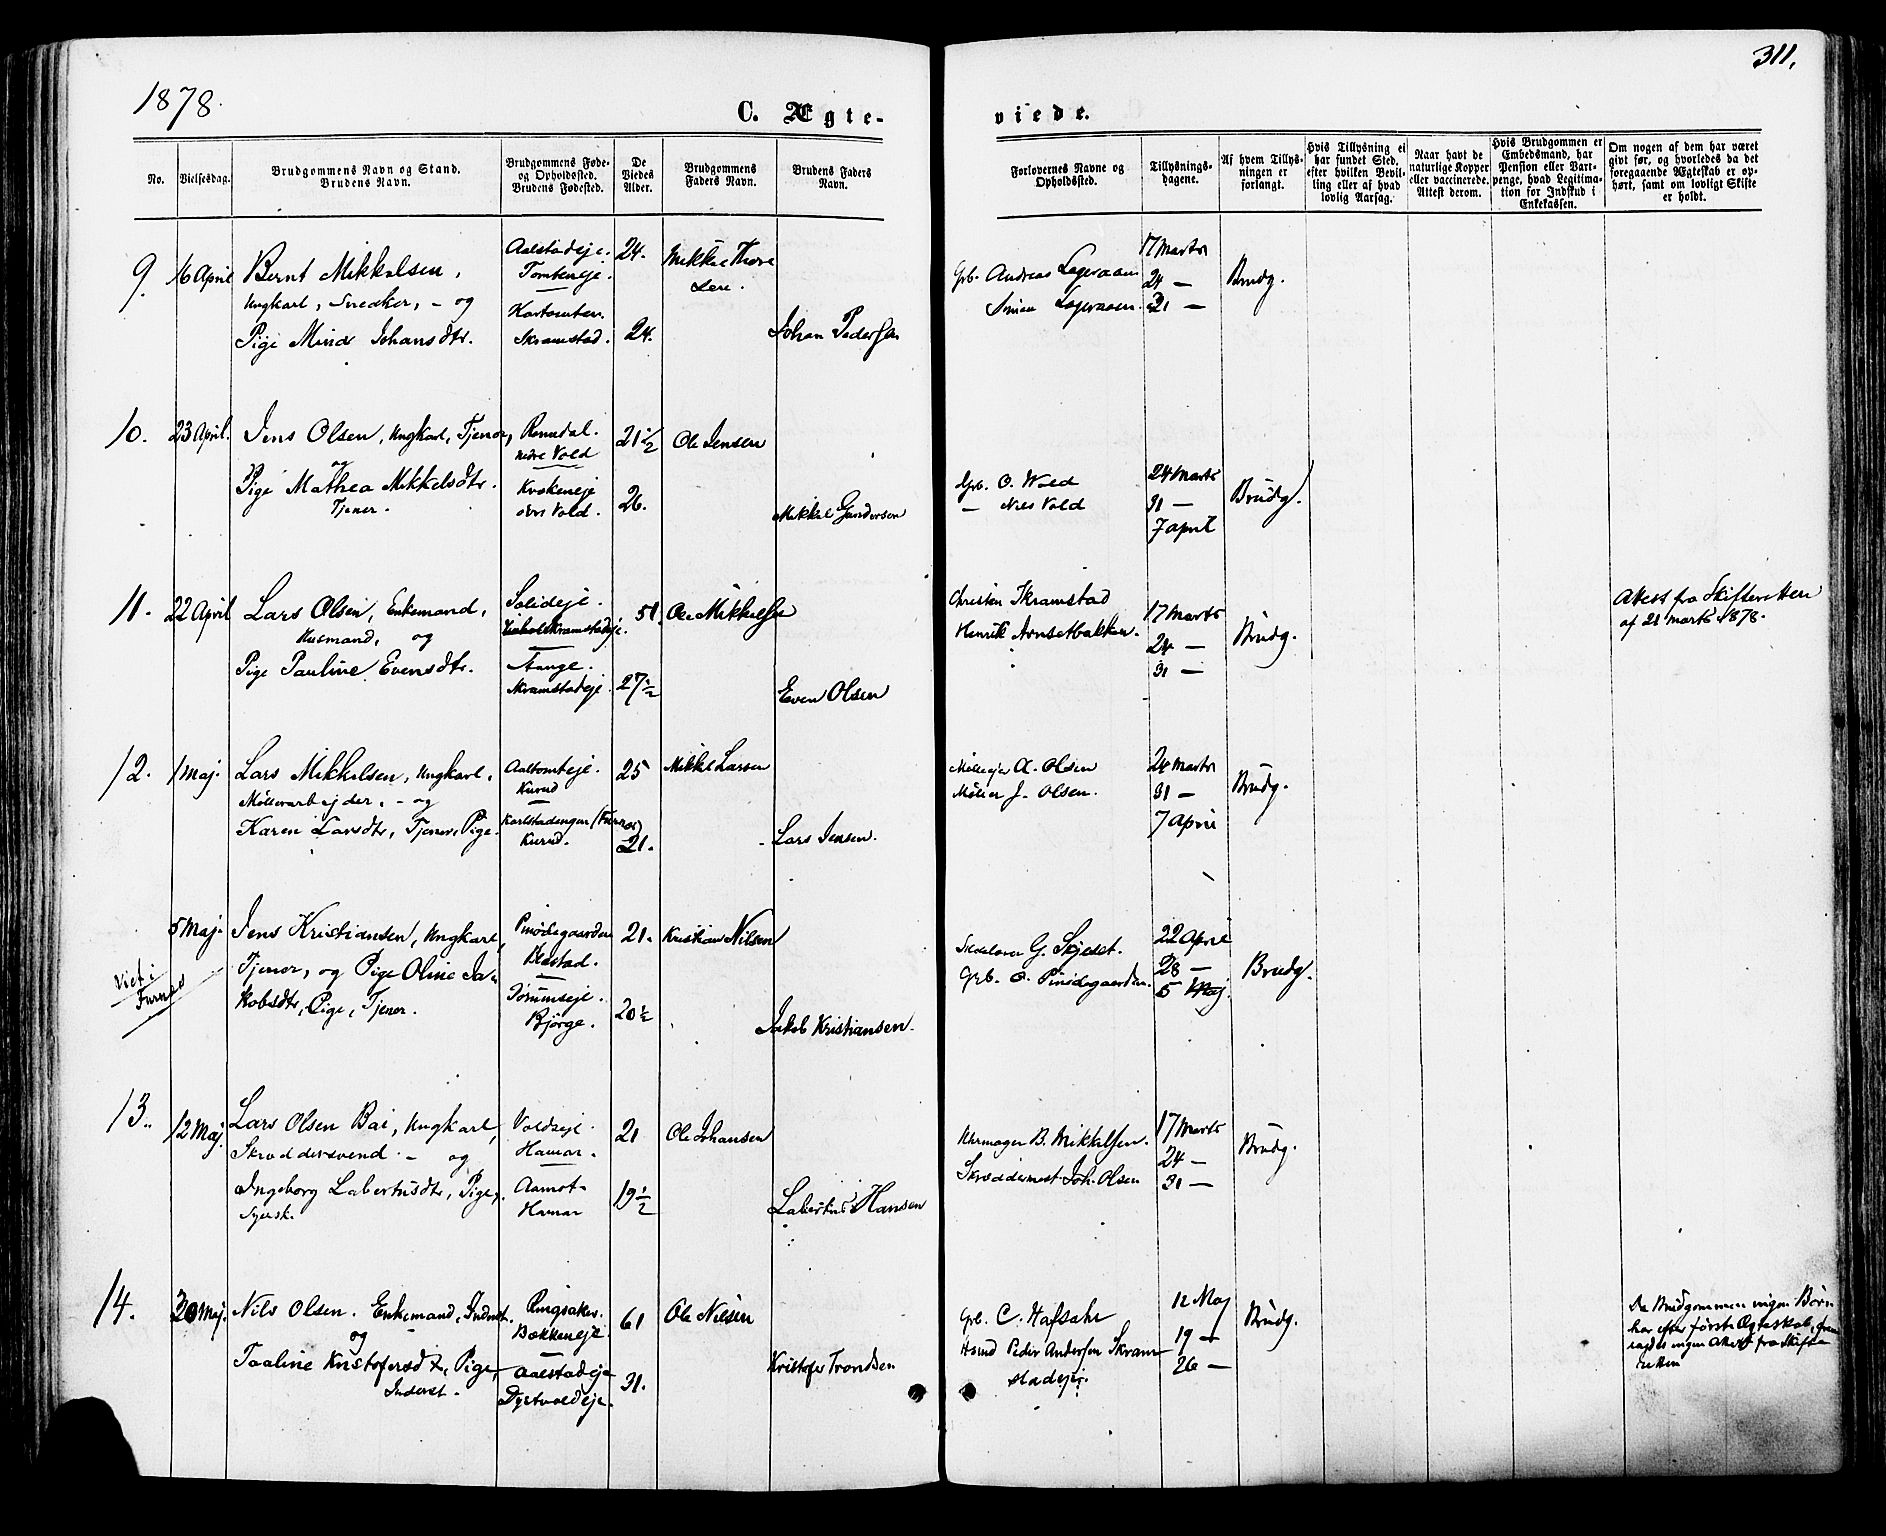 1878.
311.
C. Ægte-
viede.
No.
Vielsesdag.
Brudgommens Navn og Stand.
Brudens Navn.
Brudgommens Føde-
og Opholdssted.
Brudens Fødested.
De
Viedes
Alder.
Brudgommens
Faders Navn.
Brudens Faders
Navn.
Forlovernes Navne og
Opholdssted.
Tillysnings-
dagene.
Af hvem Tillys-
ningen er
forlangt.
Hvis Tillysning ei
har fundet Sted,
efter hvilken Bevil-
ling eller af hvad
lovlig Aarsag.
Naar havt de
naturlige Kopper
eller vaccinerede.
Attest derom.
Hvis Brudgommen er
Embedsmand, har
Pension eller Vart-
penge, hvad Legitima-
tion for Indskud i
Enkekassen.
Om nogen af dem har været
givt før, og hvorledes da det
foregaaende Ægteskab er op-
hørt, samt om lovligt Skifte
er holdt.
9.
16 April
Bernt Mikkelsen,
Ungkarl, Snedker, – og
Pige Mina Johansdtr.
Aalstadeje.
Tomteneje.
Skramstad.
24.
24.
Mikkel Thore
sen.
Johan Pedersen
Grb. Andreas Lageraaen
Simen Lageraaen.
17 Marts
24 —
31 —
Brudg.
10.
23 April.
Jens Olsen, Ungkarl, Tjener,
og
Pige Mathea Mikkelsdtr.
Tjener.
Romedal.
nedre Vold
Kvækeneje
øvre Vold.
21 1/2
26.
Ole Jensen
Mikkel Gundersen
Grb. O. Wold
— Nils Vold
24 Marts
31 —
7 April
Brudg.
11.
22 April
Lars Olsen, Enkemand,
Husmand, og
Pige Pauline Evensdtr.
Solideje.
Stange.
Skramstadeje.
51.
27 1/2
Ole Mikkelsen
Even Olsen
Christen Skramstad
Henrik Arnsetbakken.
17 Marts
24 —
31 —
Brudg.
Attest fra Skifteretten
af 21 Marts 1878.
12.
1 Maj.
Lars Mikkelsen, Ungkarl,
Møllerarbejder, – og
Karen Larsdtr, Tjener, Pige.
Aaltomteje.
Kurud
Karlstadengen (Furnes)
Kurud.
25
21.
Mikkel Larsen
Lars Jensen.
Mølleejer A. Olsen
Møller J. Olsen.
24 Marts
31 —
7 April
Brudg.
Viet i
Furnes
5 Maj.
Jens Kristiansen, Ungkarl,
Tjener, og Pige Oline Ja-
kobsdtr, Pige, Tjener.
Pinödegaarden
Bjørge.
21.
20 1/2
Kristian Nilsen
Jakob Kristiansen.
Skolelærer G. Skjeset.
Grb. O. Pinödegaarden.
22 April
28 —
5 Maj.
Brudg.
13.
12 Maj.
Lars Olsen Bai, Ungkarl,
Skræddersvend – og
Ingeborg Labertusdtr, Pige,
Syersk.
Voldseje.
Hamar.
Aamot.
Hamar
21
19 1/2
Ole Johansen
Labertus Hansen
Uhrmager B. Mikkelsen.
Skræddermest. Joh. Olsen
17 Marts
24 —
31 —
Brudg.
14.
30 Maj.
Nils Olsen. Enkemand, Inderst.
og
Taaline Kristofersdtr, Pige,
Inderst.
Ringsaker.
Bakkeneje.
Aalstadeje
Dystvoldeje.
61
31.
Ole Nilsen
Kristofer Trondsen
Grb. C. Hafsahr
Hsmd Peder Andersen Skram-
stadeje.
12 Maj
19 —
26 —
Brudg.
Da Brudgommen ingen Børn
har efter første Ægteskab, frem-
lagdes ingen Attest fra Skifte-
retten